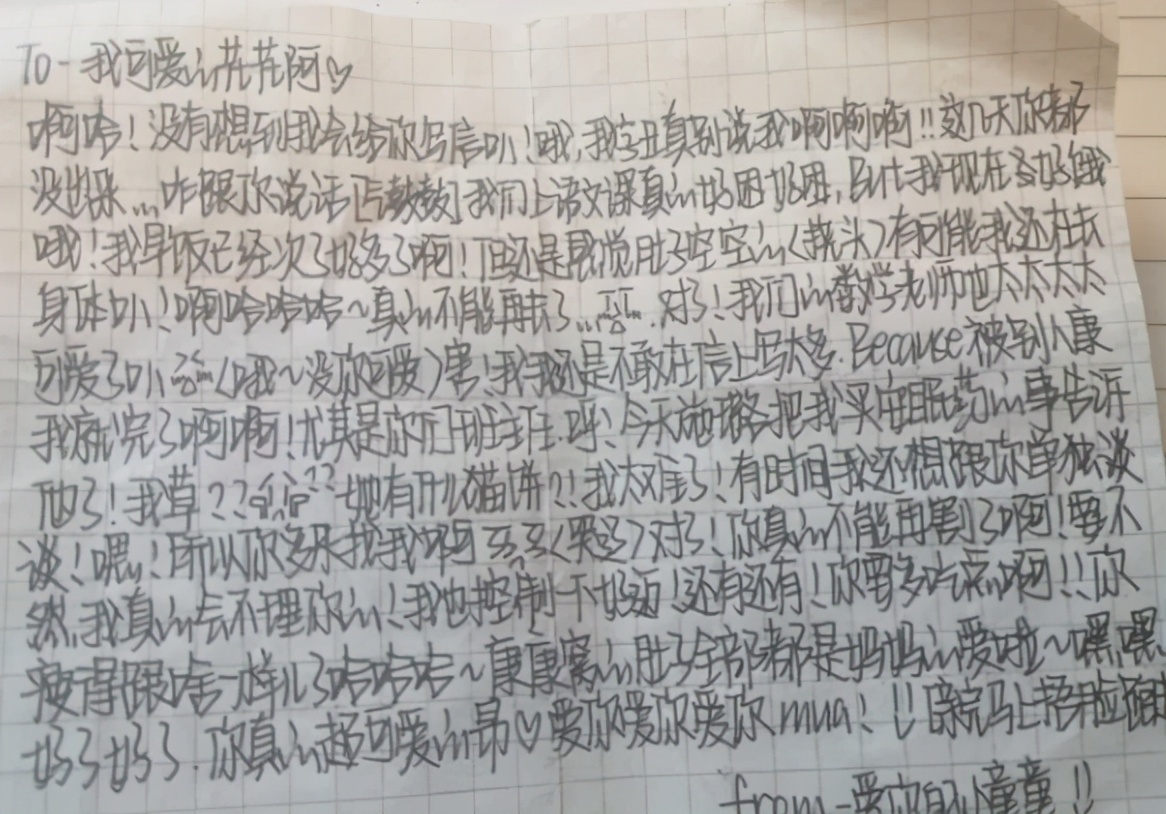 To-我可爱的花花阿♡
啊哈！没有想到我会给你写信叭！哦，我字丑真别说我啊啊啊!!这几天你都
没理睬...咋跟你说话[气鼓鼓]我们上语文课真的好困好困，But我现在多好饿
哦！我早饭已经次了好多了啊！但还是感觉肚子空空的(挠头)有可能我还在长
身体叭！啊哈哈哈~真的不能再长了...对了！我们的数学老师也太太太太
可爱了叭(哦~没你可爱)害！我还是不敢在信上写太多. Because被别人康
我就完了啊啊！尤其是你们班主任.呼！今天她把我买安眠药的事告诉
他了！我草??她有什么猫饼?!我太难了！有时间我还想跟你单独谈
谈！嗯！所以你多来找我啊(哭了)对了！你真的不能再割了啊！要不
然,我真的会不理你的！我也控制一下好逅!还有还有！你要多吃点啊!!你
瘦得跟啥一样儿了哈哈哈~康康窝的肚子全部都是妈妈的爱啦~嘿嘿
好了好了.你真的超可爱的昂♡爱你爱你爱你mua！!!马上
from-爱你的小童童!!